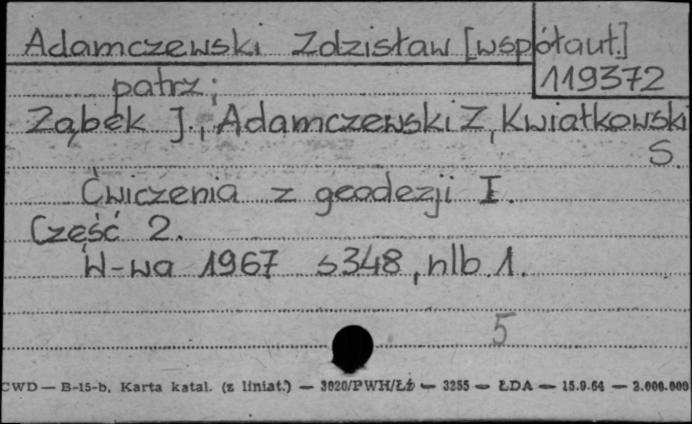 Adamczewski Zdzisław [współaut.]
119372
patrz:
Ząbek J., Adamczewski Z, Kwiatkowski
S.
Ćwiczenia z geodezji I.
Część 2.
W-wa 1967 s348, nlb. 1.
5
CWD — B-15-b, Karta katal. (z liniat.) — 3020/PWH/Łż — 3255 — ŁDA — 15.9.64 — 2.000.000